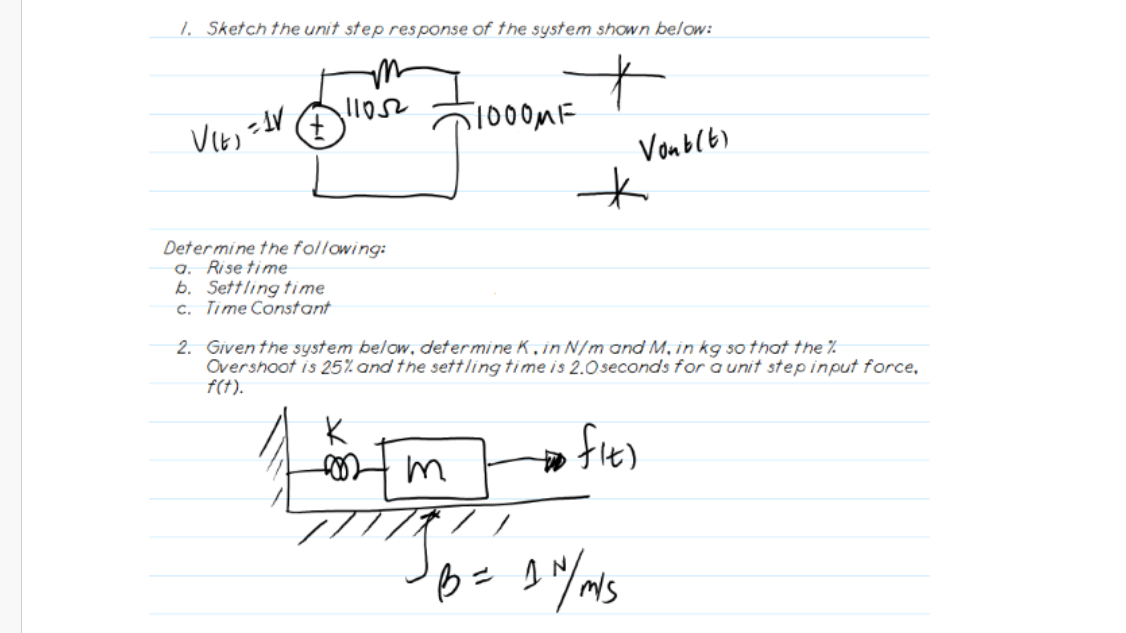 1. Sketch the unit step response of the system shown below:
V(t) = 1V
110Ω
1000μF
Vout(t)
Determine the following:
a. Rise time
b. Settling time
c. Time Constant
2. Given the system below, determine K, in N/m and M, in kg so that the %
Overshoot is 25% and the settling time is 2.0 seconds for a unit step input force,
f(t).
K
m
f(t)
β = 1 N/m/s